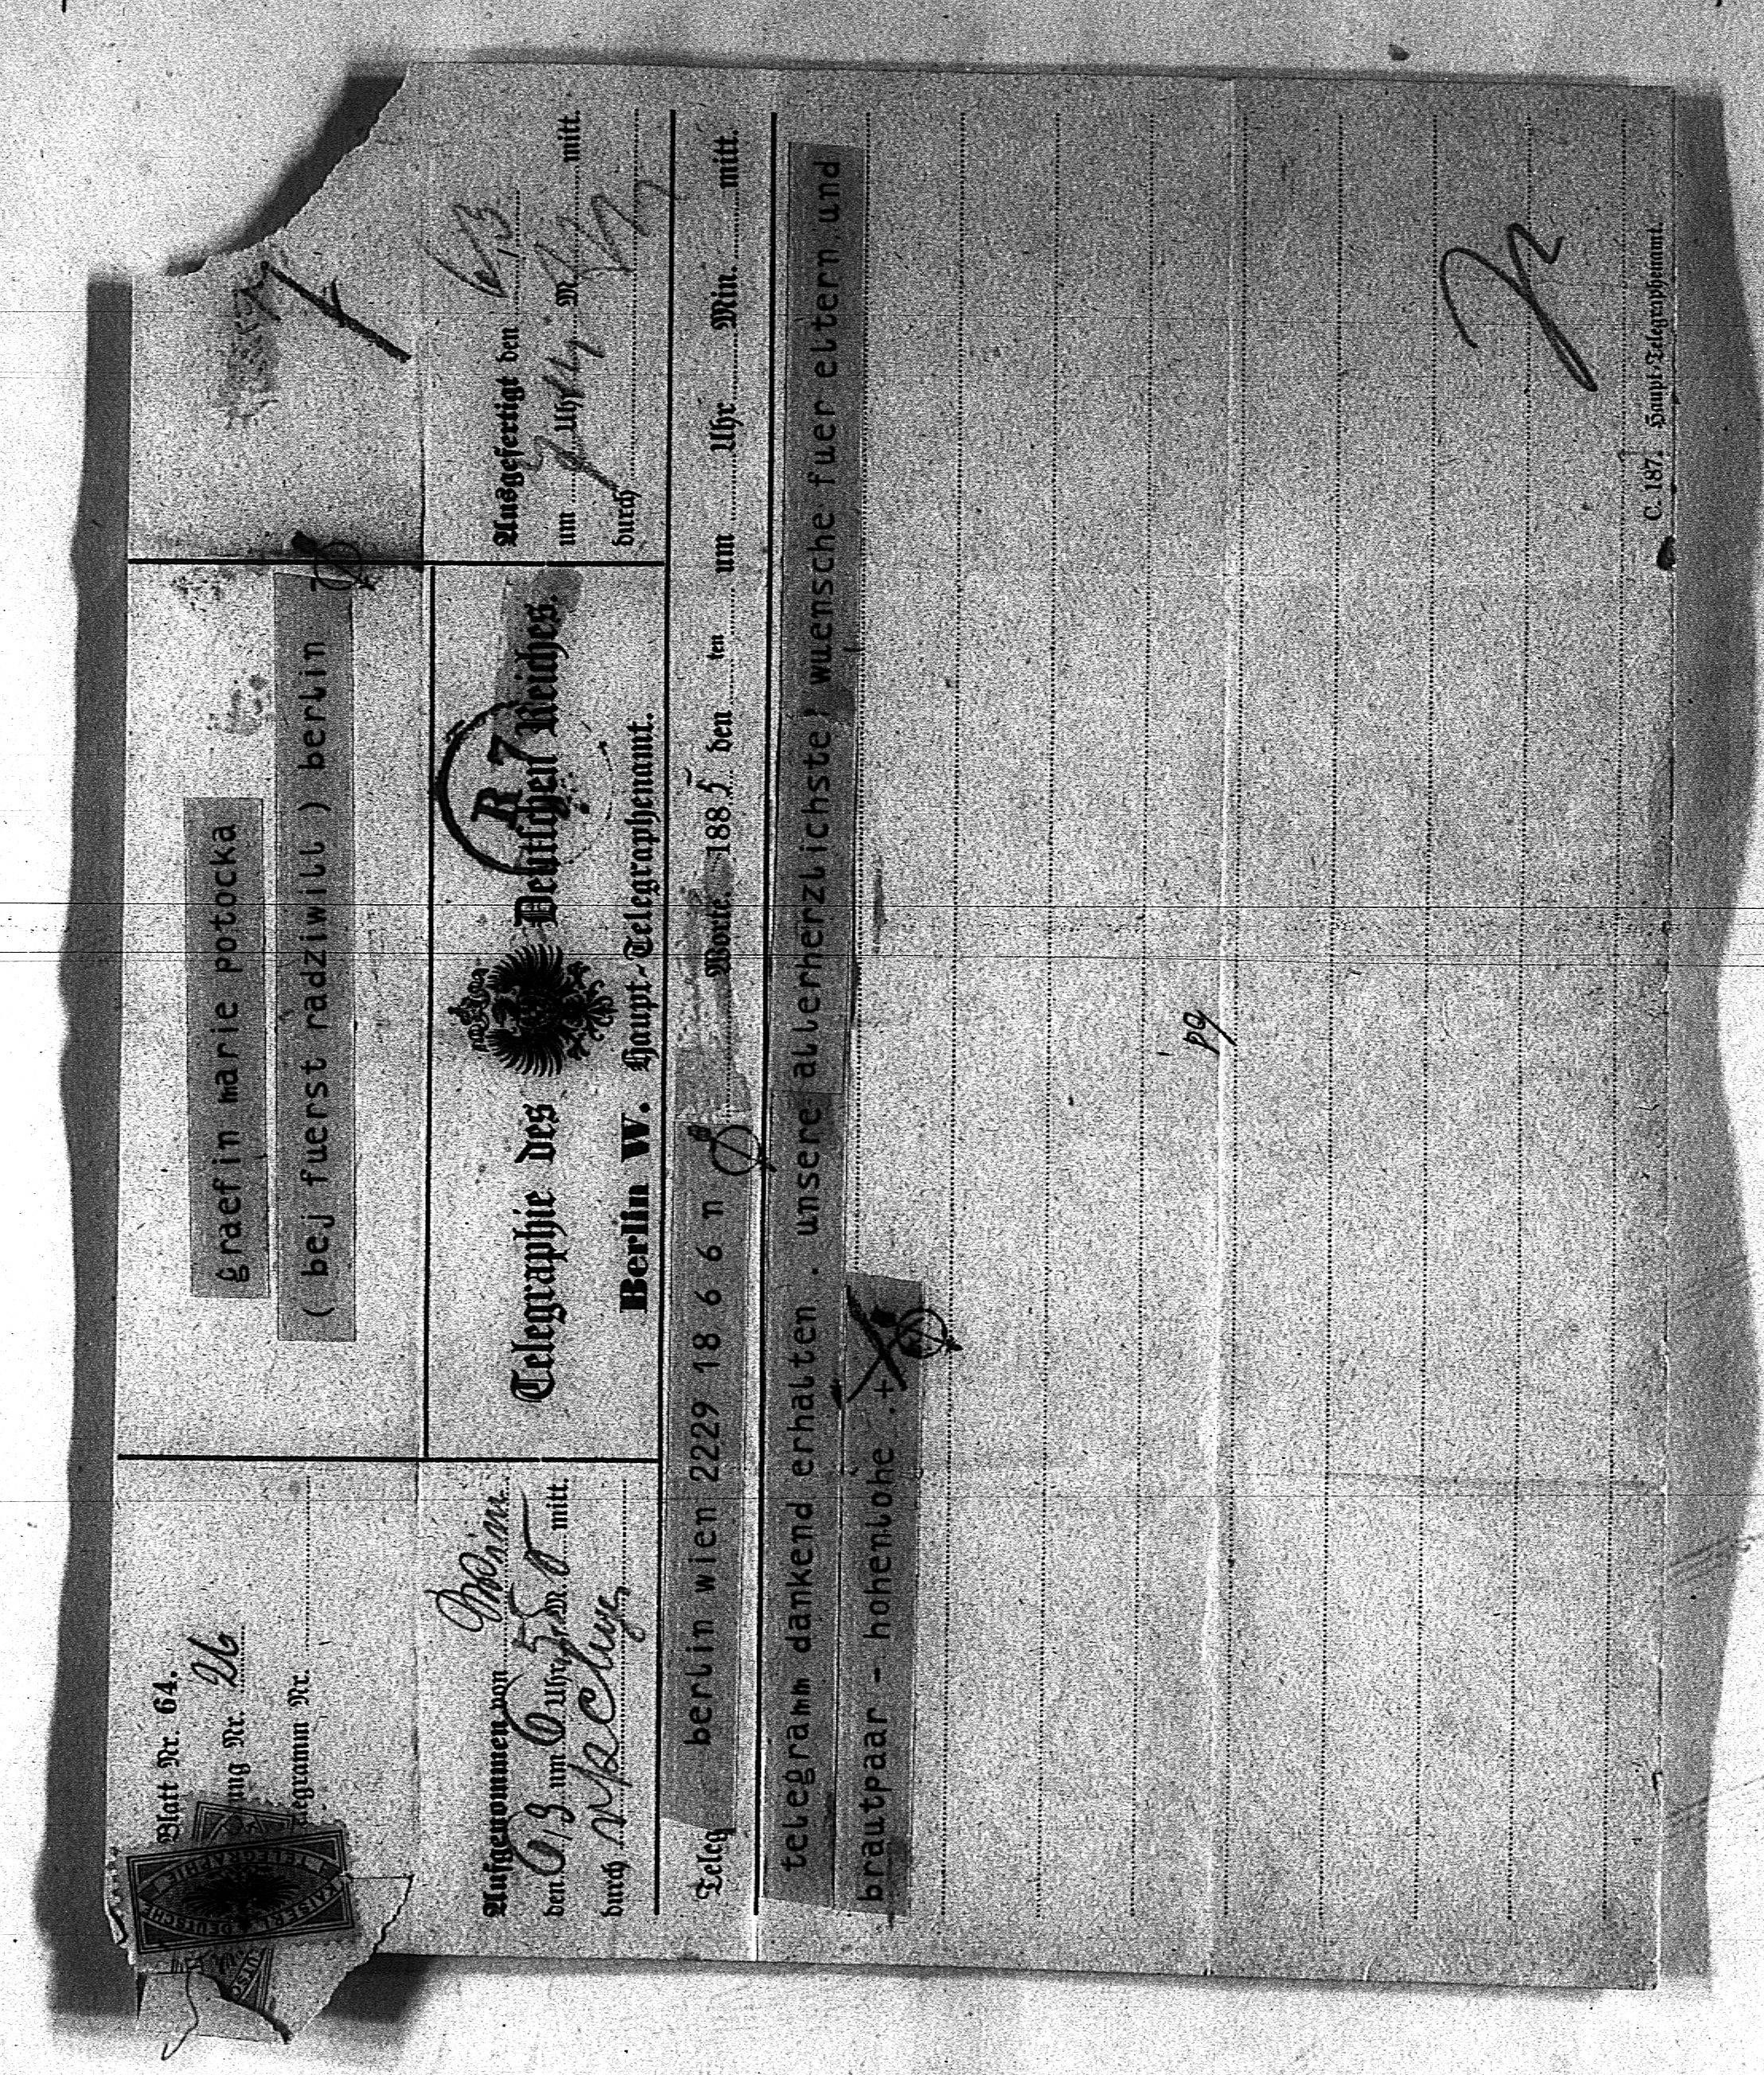 Blatt Nr. 64.
ung Nr. 26
legramm Nr.
graefin marie potocka
( bej fuerst radziwill ) berlin
KAISERL. DEUTSCHE TELEGRAPHIE
Aufgenommen von
den 6/3 um 6 Uhr 55 M. mitt.
durch
Telegraphie des Deutschen Reiches.
R 7
Berlin W. Haupt-Telegraphenamt.
Ausgefertigt den 6/3
um 7 Uhr M. mitt.
durch
Teleg berlin wien 2229 18 6 6 n Worte. 1885 den ten um Uhr Min. mitt.
telegramm dankend erhalten . unsere allerherzlichste) wuensche fuer eltern und
brautpaar - hohenlohe .+
pq
C. 187. Haupt-Telegraphenamt.